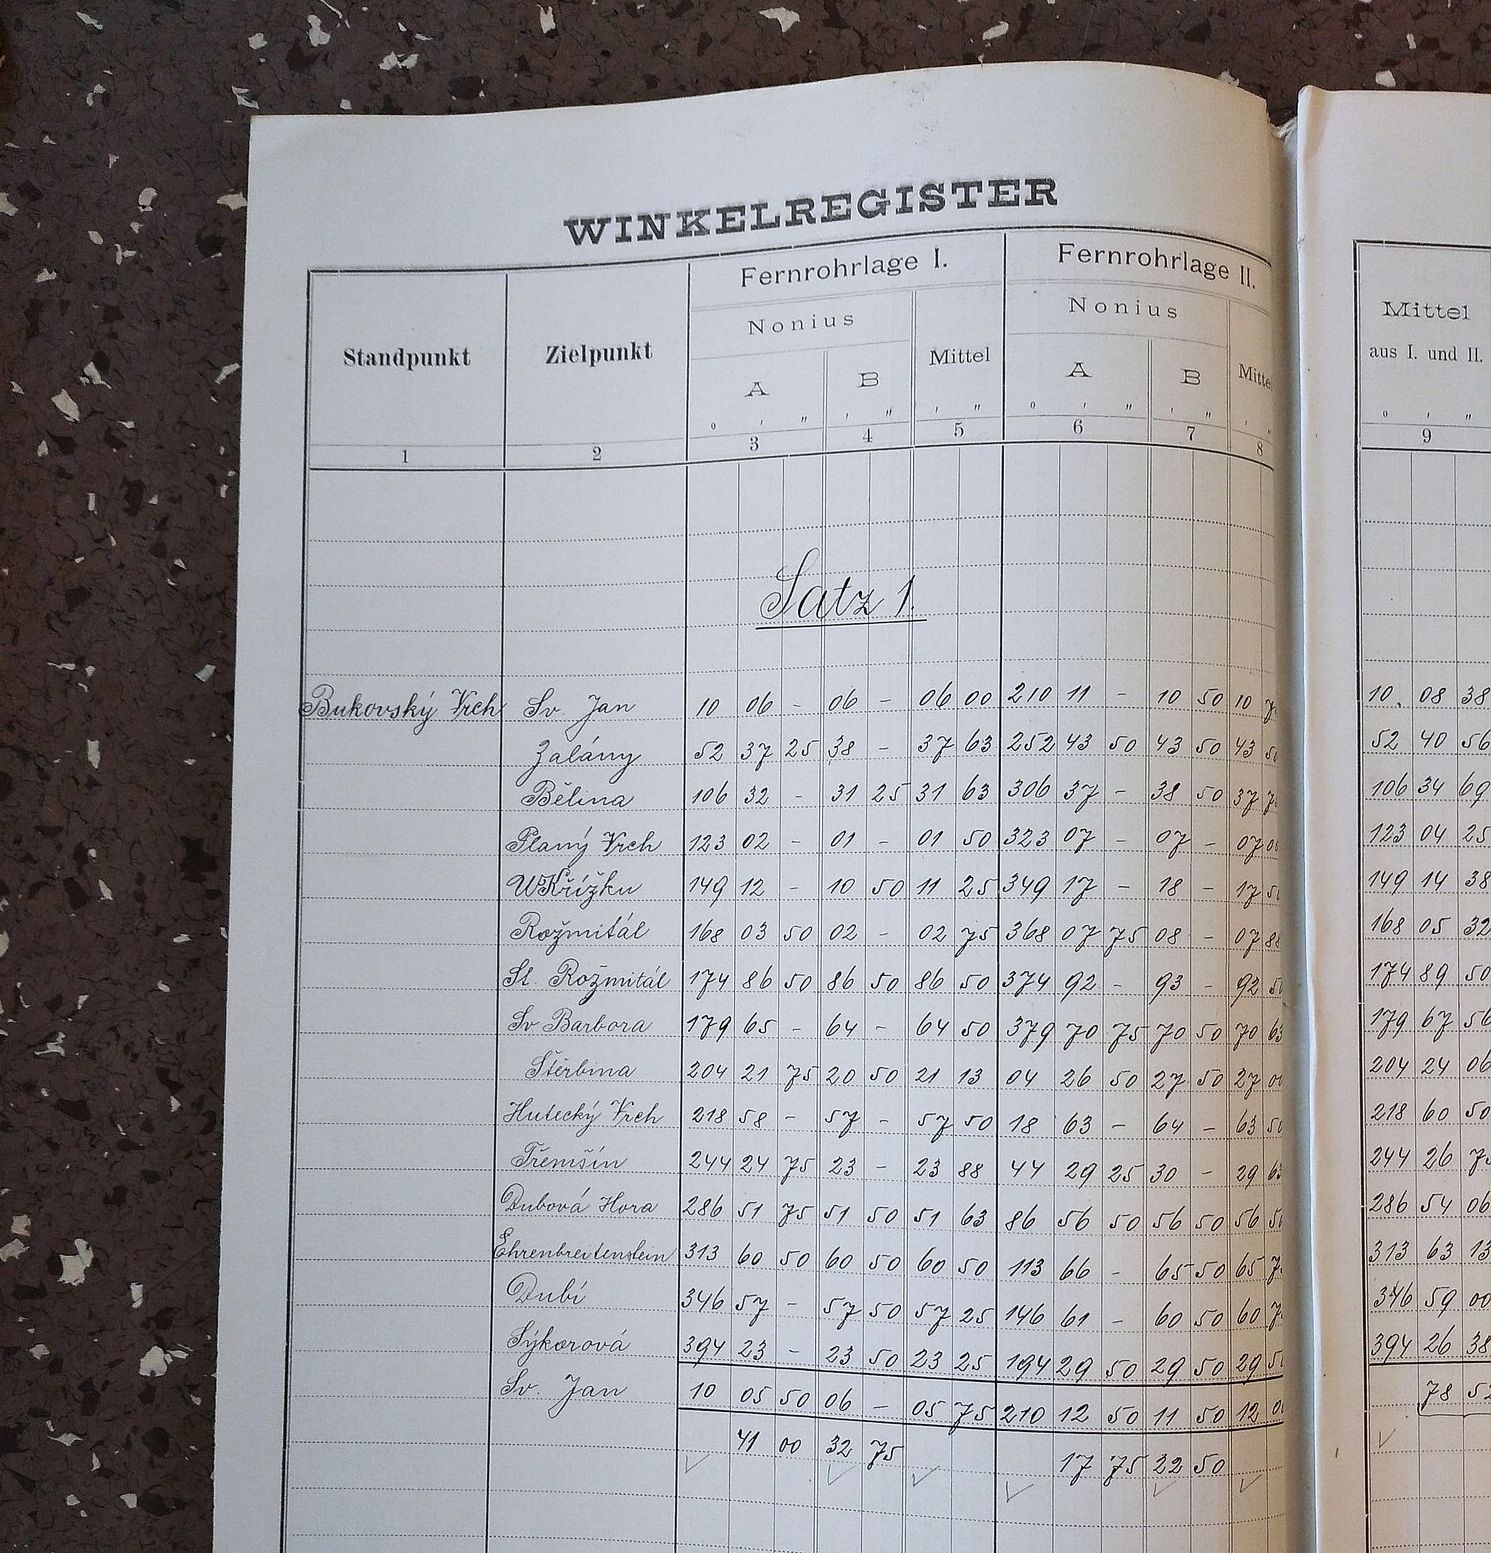 WINKELREGISTER
Standpunkt Zielpunkt Fernrohrlage I. Fernrohrlage II.
Nonius Mittel Nonius Mittel aus I. und II.
A B A B
° ' " ' " ' " ° ' " ' " ' " ° ' "
1 2 3 4 5 6 7 8 9
Satz 1.
Bukovský Vrch Sv. Jan 10 06 - 06 - 06 00 210 11 - 10 50 10 10. 08 38
Zalány 52 37 25 38 - 37 63 252 43 50 43 50 43 50 52 40 56
Bělina 106 32 - 31 25 31 63 306 37 - 38 50 37 106 34 69
Planý Vrch 123 02 - 01 - 01 50 323 07 - 07 - 07 00 123 04 25
U Křížku 149 12 - 10 50 11 25 349 17 - 18 - 17 50 149 14 38
Rožmitál 168 03 50 02 - 02 75 368 07 75 08 - 07 88 168 05 32
St. Rožmitál 174 86 50 86 50 86 50 374 92 - 93 - 92 50 174 89 50
Sv Barbora 179 65 - 64 - 64 50 379 70 75 70 50 70 63 179 67 56
Štěrbina 204 21 75 20 50 21 13 04 26 50 27 50 27 00 204 24 06
Hutecký Vrch 218 58 - 57 - 57 50 18 63 - 64 - 63 50 218 60 50
Třemšín 244 24 75 23 - 23 88 44 29 25 30 - 29 63 244 26
Dubová Hora 286 51 75 51 50 51 63 86 56 50 56 50 56 50 286 54 06
Ehrenbreitenstein 313 60 50 60 50 60 50 113 66 - 65 50 65 313 63 13
Dubí 346 57 - 57 50 57 25 146 61 - 60 50 60 346 59 00
Sýkorová 394 23 - 23 50 23 25 194 29 50 29 50 29 50 394 26 38
Sv. Jan 10 05 50 06 - 05 75 210 12 50 11 50 12 78
41 00 32 75 17 75 22 50